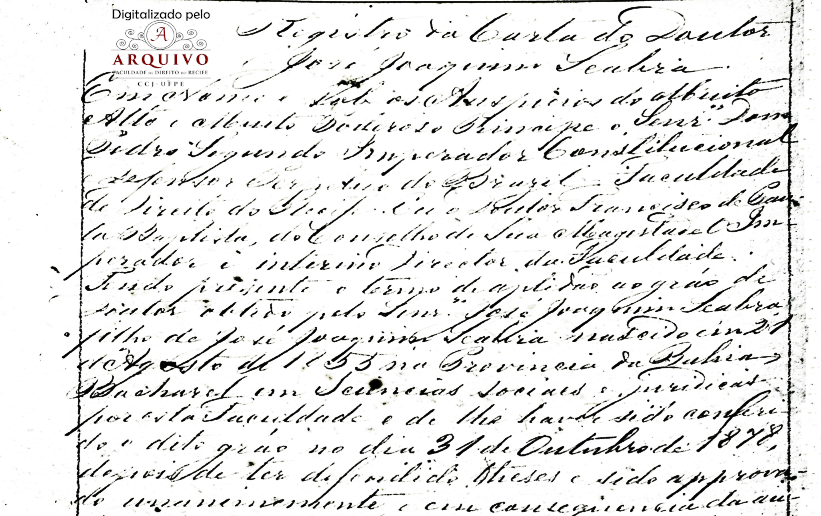 Digitalizado pelo
A
ARQUIVO
FACULDADE DE DIREITO DO RECIFE
CCJ-UFPE
Registro da Carta do Doutor
José Joaquim Seabra.
Em Nome e Sob os Auspicios do Muito
Alto e Muito Poderoso Principe o Senr. Dom
Pedro Segundo Imperador Constitucional
e Defensor Perpetuo do Brazil. Faculdade
de Direito do Recife. Eu Doutor Francisco de Pau-
la Baptista, do Conselho de Sua Magestade o Im-
perador e interino Director da Faculdade.
Tendo presente o termo de aptidão ao gráo de
doutor obtido pelo Senr. José Joaquim Seabra,
filho de José Joaquim Seabra nascido em 21
de Agosto de 1855 na Provincia da Bahia,
Bacharel em Sciencias sociaes e juridicas
por esta Faculdade e de lhe haver sido conferi-
do o dito gráo no dia 31 de Outubro de 1878,
depois de ter defendido theses e sido approva-
do unanimemente e em consequencia da au-